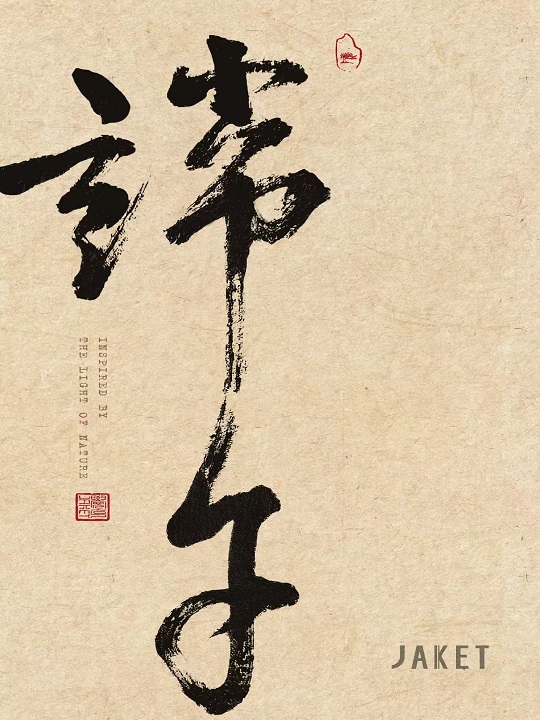 端午
INSPIRED BY
THE LIGHT OF NATURE
JAKET